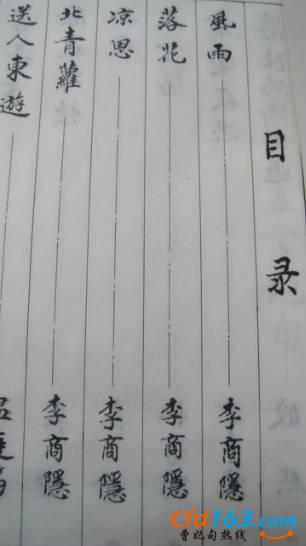 目录
風雨——李商隱
落花——李商隱
凉思——李商隱
北青蘿——李商隱
送人東遊——
Cfd163.com
曹妃甸热线